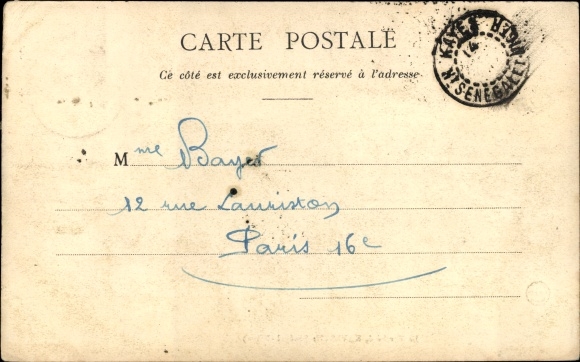 CARTE POSTALE
Ce côté est exclusivement réservé à l'adresse
KAYES
Mme Bayet
12 rue Lauriston
Paris 16e